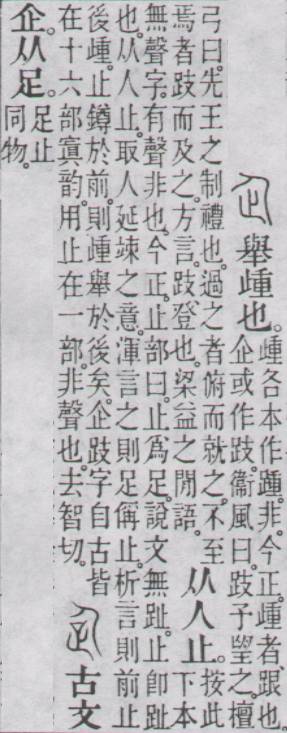 企舉歱也。
歱各本作踵。非。今正。歱者、跟也。
企或作跂。衞風曰。跂予望之。檀
弓曰。先王之制禮也。過之者俯而就之。不至
焉者跂而及之。方言。跂、登也。梁益之閒語。
从人止。
按此
下本
無聲字。有聲非也。今正。止部曰。止爲足。說文無趾。止卽趾
也。从人止。取人延竦之意。渾言之則足偁止。析言則前止
後歱。止鐏於前。則歱舉於後矣。企跂字自古皆
在十六部寘韵。用止在一部。非聲也。去智切。
古文
企。从足。
足止
同物。